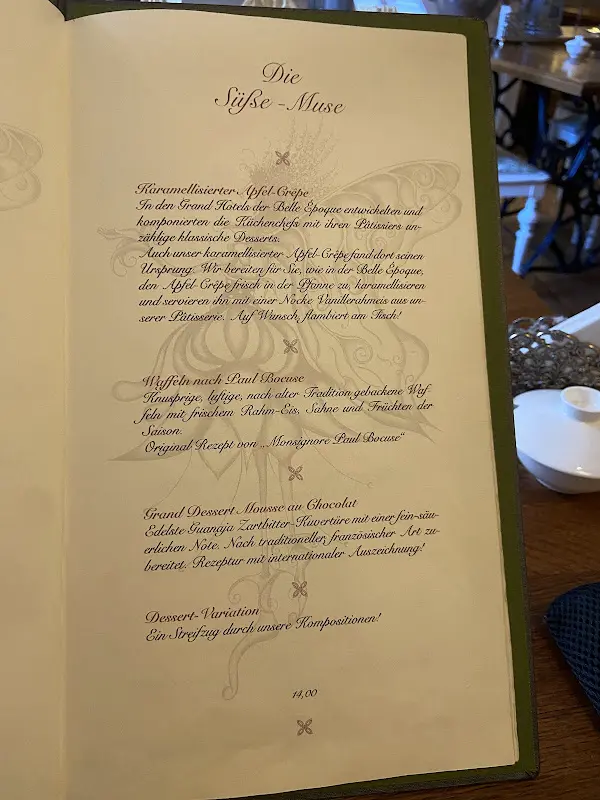 Die
Süße - Muse
Karamellisierter Apfel-Crêpe
In den Grand Hotels der Belle Époque entwickelten und
komponierten die Küchenchefs mit ihren Pâtissiers un-
zählige klassische Desserts.
Auch unser karamellisierter Apfel-Crêpe fand dort seinen
Ursprung. Wir bereiten für Sie, wie in der Belle Époque,
den Apfel-Crêpe frisch in der Pfanne zu, karamellisieren
und servieren ihn mit einer Nocke Vanillerahmeis aus un-
serer Pâtisserie. Auf Wunsch, flambiert am Tisch!
Waffeln nach Paul Bocuse
Knusprige, luftige, nach alter Tradition gebackene Waf
feln mit frischem Rahm-Eis, Sahne und Früchten der
Saison.
Original Rezept von „Monsignore Paul Bocuse“
Grand Dessert Mousse au Chocolat
Edelste Guanaja Zartbitter-Kuvertüre mit einer fein-säu-
erlichen Note. Nach traditioneller, französischer Art zu-
bereitet. Rezeptur mit internationaler Auszeichnung!
Dessert-Variation
Ein Streifzug durch unsere Kompositionen!
14,00